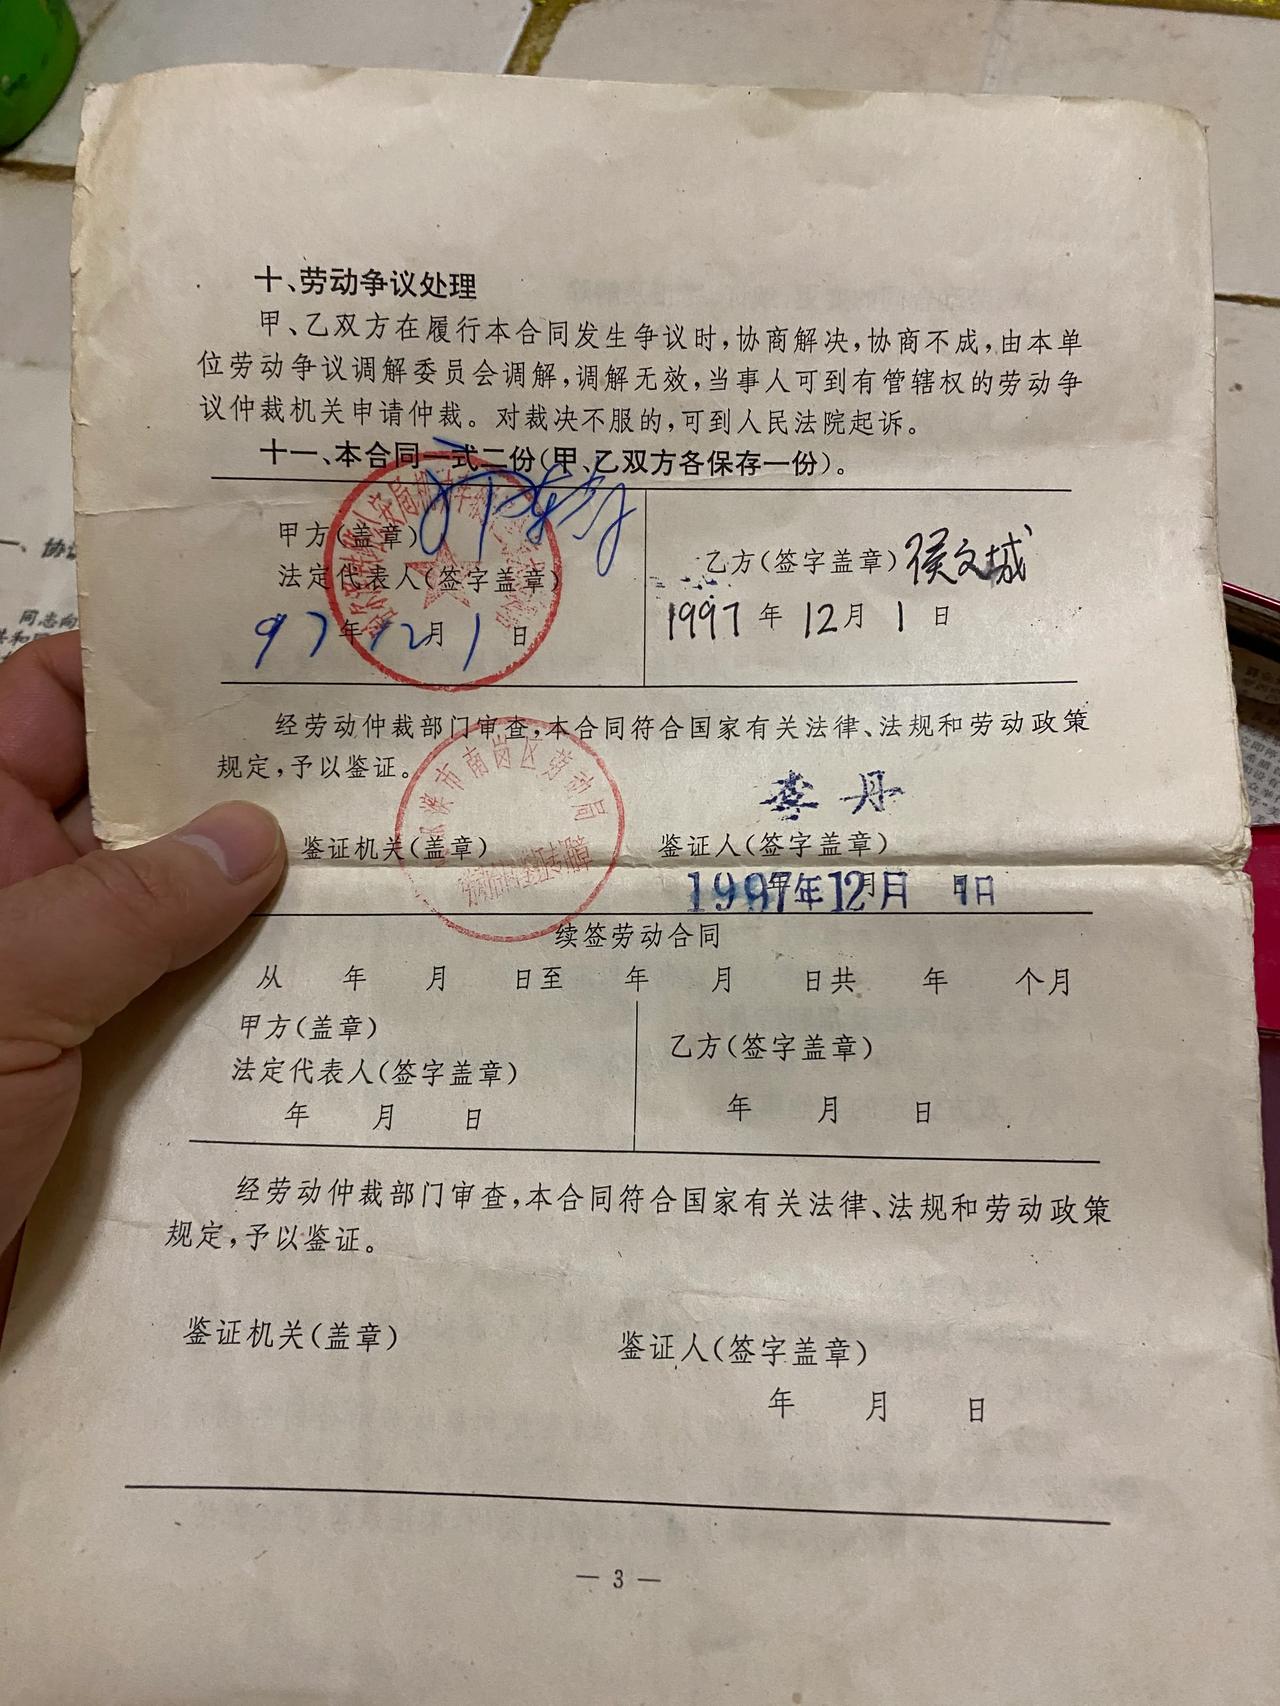 十、劳动争议处理
甲、乙双方在履行本合同发生争议时,协商解决,协商不成,由本单
位劳动争议调解委员会调解,调解无效,当事人可到有管辖权的劳动争
议仲裁机关申请仲裁。对裁决不服的,可到人民法院起诉。
十一、本合同一式二份(甲、乙双方各保存一份)。
甲方(盖章)
法定代表人(签字盖章)
97年12月1日
乙方(签字盖章)侯文城
1997年12月1日
经劳动仲裁部门审查,本合同符合国家有关法律、法规和劳动政策
规定,予以鉴证。
滨市南岗区劳动局
鉴证机关(盖章)
李丹
鉴证人(签字盖章)
1997年12月 日
续签劳动合同
从 年 月 日至 年 月 日共 年 个月
甲方(盖章)
法定代表人(签字盖章)
年 月 日
乙方(签字盖章)
年 月 日
经劳动仲裁部门审查,本合同符合国家有关法律、法规和劳动政策
规定,予以鉴证。
鉴证机关(盖章)
鉴证人(签字盖章)
年 月 日
— 3 —
一、协
同志向
共和国